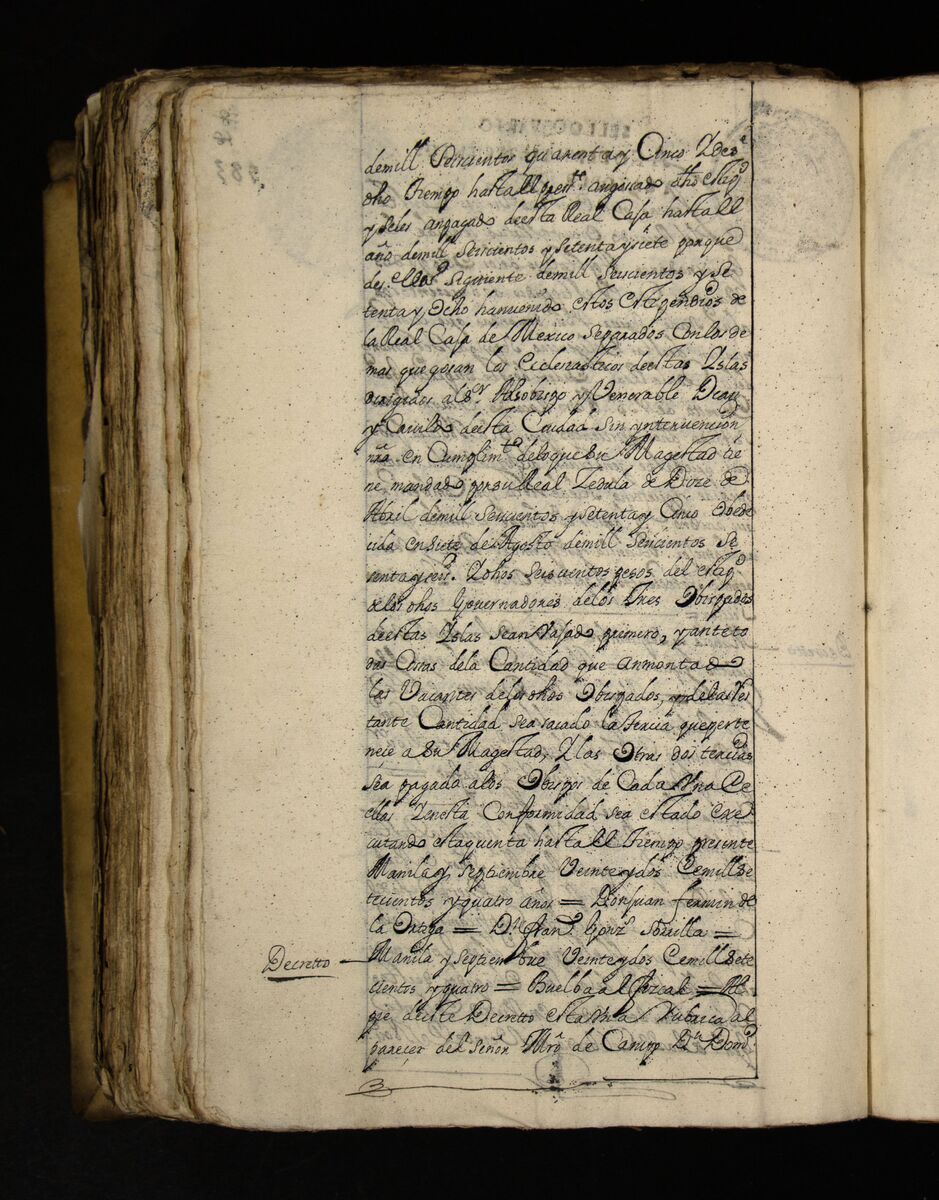 demill Seiscientos quarenta y Cinco Ydes.e
dho tiempo hasta el pres.te an gosado dho estip.o
y seles an pagado de esta Real Caja hasta el
año de mill Seiscientos y setenta y siete porque
des.e el año siguiente de mill Seiscientos y se
tenta y Ocho han venido estos estipendios de
la Real Caja de Mexico separados con los de
mas que gosan los Eclesiasticos de estas Yslas
dirigidos al S.r Arsobispo y Venerable Dean
y Cavildo de esta Ciudad sin yntervencion
nrã en Cumplim.to de lo que Su Magestad tie
ne mandado por su Real Zedula de Doze de
Abril de mill Seiscientos y setenta y Cinco obede
cida en siete de Agosto de mill Seiscientos se
tenta y seis. Y dhos seiscientos pesos del estip.o
de los dhos Governadores de los tres Obispados
de estas Yslas sean vajado primero, y ante to
das Cosas de la Cantidad que an montado
las Vacantes de los dhos Obispados, y de la Res
tante Cantidad sea sacado la tercia que perte
nece a Su Magestad, Y las Otras dos tercias
sea pagado a los Obispos de Cada Vna de
ellas Y en esta Conformidad sea estado exe
cutando esta quenta hasta el tiempo presente
Manila y Septiembre Veinte y dos de mill Se
tecientos y quatro años = Don Juan fermin de
la = D.n fran.co Gonz.
Decretto — Manila y Septiembre Veinte y dos de mill Sete
cientos y quatro = Buelba al fiscal = Al
pie de este Decretto esta Vna Rubrica al
parecer del Señor Mrõ de Campo D.n Dom.o